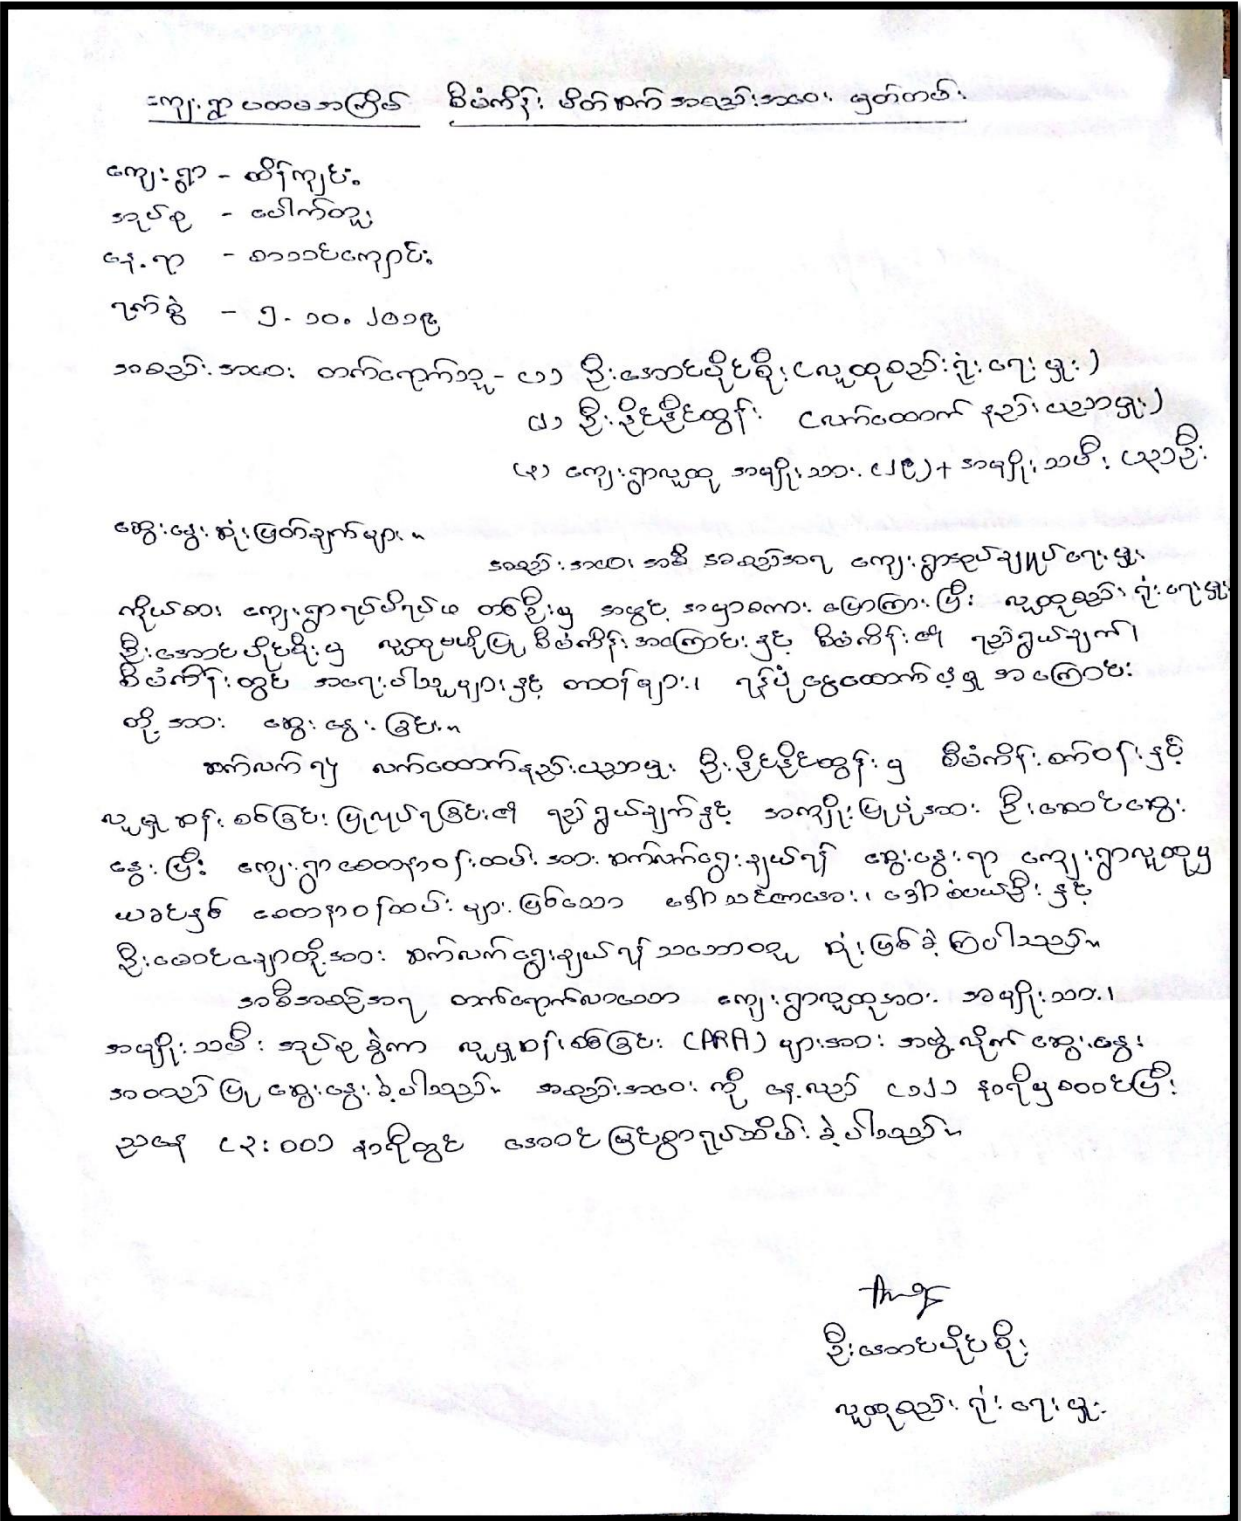 ကျေးရွာပထမအကြိမ် စီမံကိန်း မိတ်ဆက် အစည်းအဝေး မှတ်တမ်း
ကျေးရွာ - ထိန်ကျင်း
အုပ်စု - ပေါက်တူး
နေ့ရာ - စာသင်ကျောင်း
ရက်စွဲ - ၅.၁၀.၂၀၁၉
အစည်းအဝေး တက်ရောက်သူ - (၁) ဦးအောင်ပိုင်စိုး (လူထုစည်းရုံးရေးမှူး)
(၂) ဦးနိုင်နိုင်ထွန်း (လက်ထောက် နည်းပညာမှူး)
(၃) ကျေးရွာလူထု အမျိုးသား (၂၉) + အမျိုးသမီး ဦး
ဆွေးနွေးဆုံးဖြတ်ချက်များ။
အစည်းအဝေး အစီအစဉ်အရ ကျေးရွာအုပ်ချုပ်ရေးမှူး
ကိုယ်စား ကျေးရွာရပ်မိရပ်ဖ တစ်ဦးမှ အဖွင့် အမှာစကား ပြောကြားပြီး လူထုစည်းရုံးရေးမှူး
ဦးအောင်ပိုင်စိုးမှ လူထုဗဟိုပြု စီမံကိန်းအကြောင်းနှင့် စီမံကိန်း၏ ရည်ရွယ်ချက်၊
စီမံကိန်းတွင် အရေးပါသူများနှင့် တာဝန်များ၊ ရန်ပုံငွေထောက်ပံ့မှု အကြောင်း
တို့အား ဆွေးနွေးခြင်း။
ဆက်လက်၍ လက်ထောက်နည်းပညာမှူး ဦးနိုင်နိုင်ထွန်းမှ စီမံကိန်းစက်ဝန်းနှင့်
လူမှုဆန်းစစ်ခြင်း ပြုလုပ်ရခြင်း၏ ရည်ရွယ်ချက်နှင့် အကျိုးပြုပုံအား ဦးဆောင်ဆွေး
နွေးပြီး ကျေးရွာစေတနာ့ဝန်ထမ်းအား ဆက်လက်ရွေးချယ်ရန် ဆွေးနွေးရာ ကျေးရွာလူထုမှ
ယခင်နှစ် စေတနာ့ဝန်ထမ်းများဖြစ်သော ဒေါ်သင်းအေး၊ ဒေါ် နှင့်
တို့အား ဆက်လက်ရွေးချယ်ရန် သဘောတူ ဆုံးဖြစ်ခဲ့ကြပါသည်။
အစီအစဉ်အရ တက်ရောက်လာသော ကျေးရွာလူထုအား အမျိုးသား၊
အမျိုးသမီး အုပ်စုခွဲကာ လူမှုဆန်းစစ်ခြင်း (PRA) များအား အဖွဲ့လိုက် ဆွေးနွေး
အတည်ပြု ဆွေးနွေးခဲ့ပါသည်။ အစည်းအဝေးကို နေ့လည် (၁၂) နာရီမှစတင်ပြီး
ညနေ (၃:၀၀) နာရီတွင် အောင်မြင်စွာရုပ်သိမ်းခဲ့ပါသည်။
ဦးအောင်ပိုင်စိုး
လူထုစည်းရုံးရေးမှူး